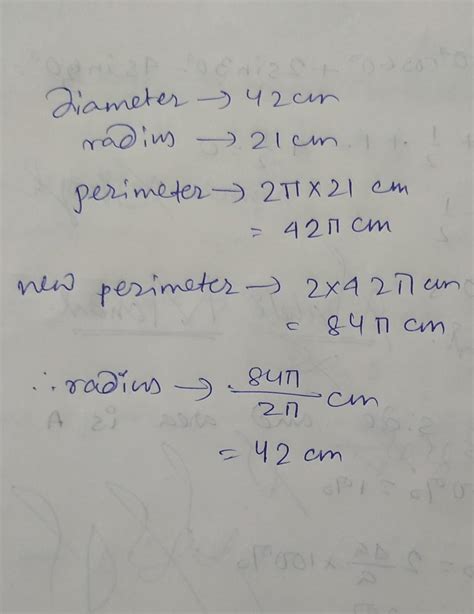 diameter → 42 cm
radius → 21 cm
perimeter → 2π × 21 cm
= 42π cm
new perimeter → 2×42π cm
= 84π cm
∴ radius → 84π/2π cm
= 42 cm